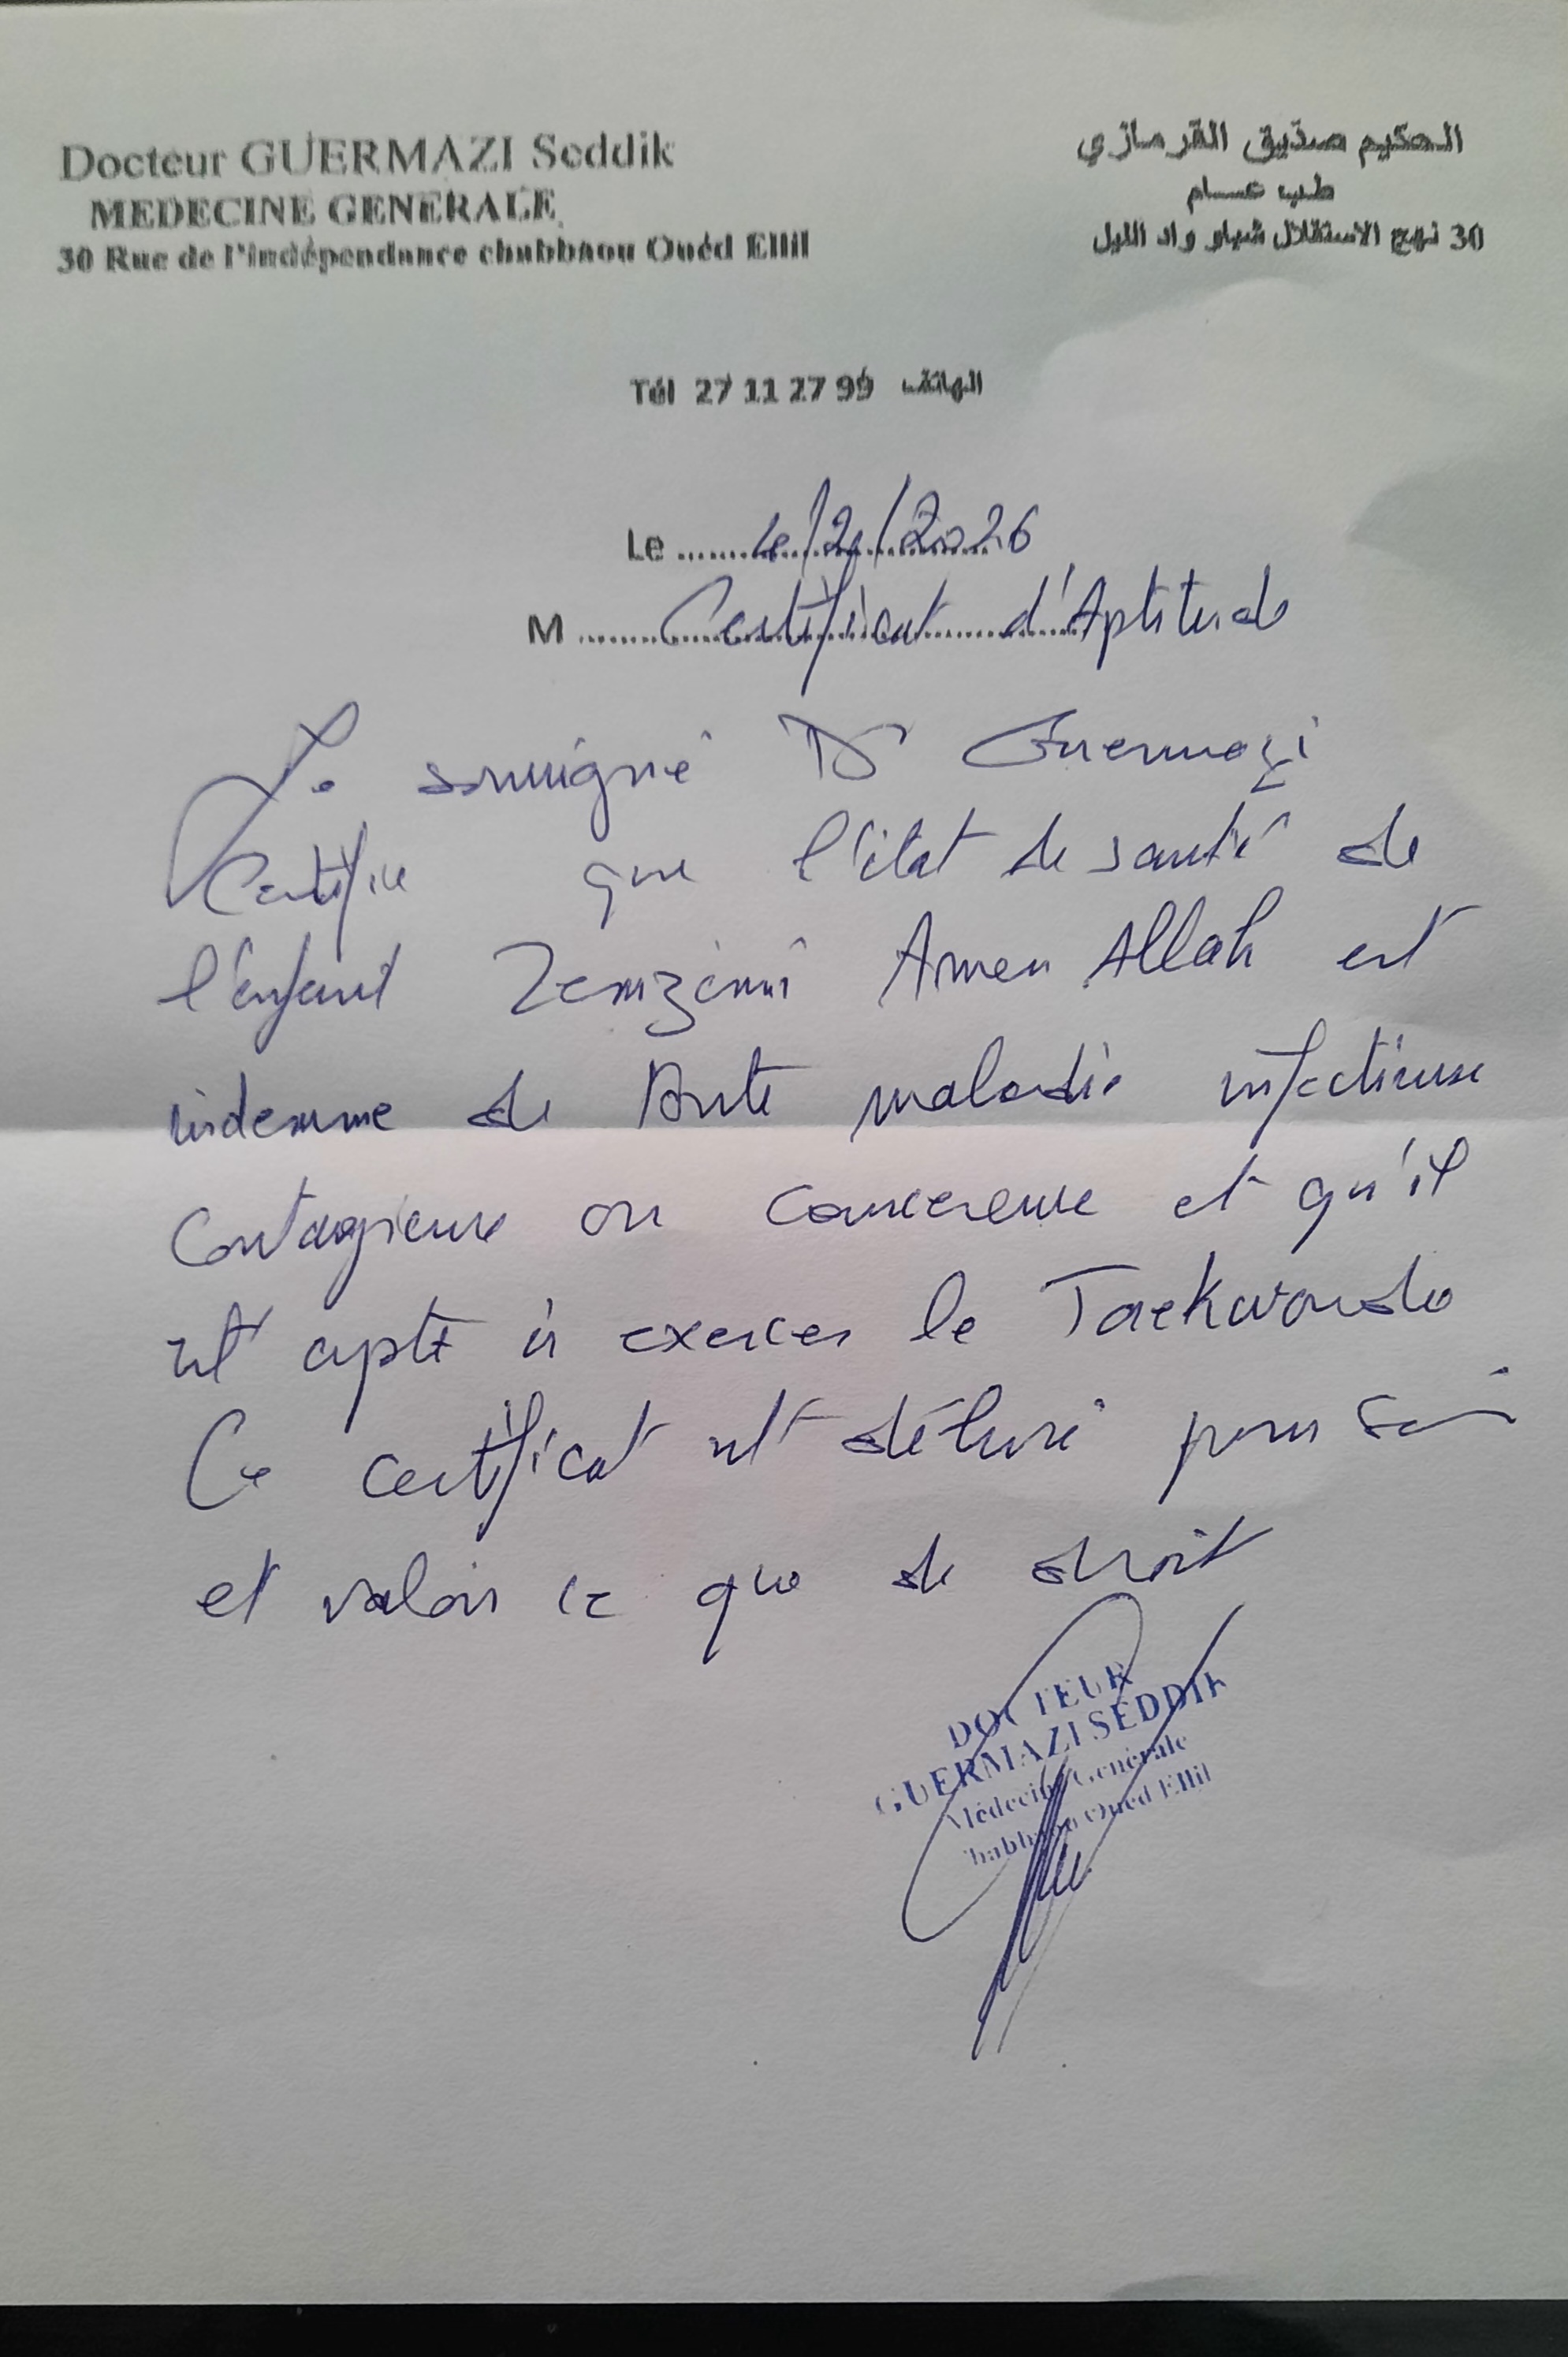 Docteur GUERMAZI Seddik
MEDECINE GENERALE
30 Rue de l'indépendance chabbaou Ouéd Ellil
الحكيم صديق القرمازي
طب عام
30 نهج الاستقلال شباو واد الليل
Tél 27 11 27 99 الهاتف
Le ....... /2/2026
M ....... Certificat d'Aptitude
Je soussigné Dr Guermazi
Certifie que l'état de santé de
l'enfant Zemzemi Amen Allah est
indemne de toute maladie infectieuse
Contagieuse ou cancereuse et qu'il
est apte à exercer le Taekwondo
Ce certificat est délivré pour servir
et valoir ce que de droit
DOCTEUR
GUERMAZI SEDDIK
Médecine Générale
Chabbaou Oued Ellil